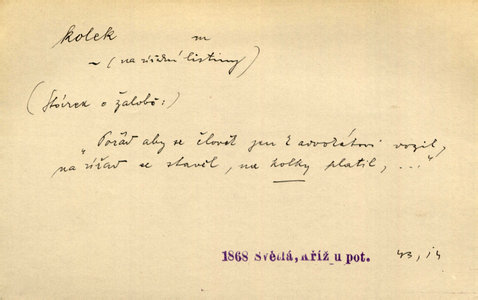 kolek m
~ (na úřední listiny)
(Stórek o žalobě:)
"Pořád aby se člověk jen k advokátovi vozil,
na úřad se stavěl, na kolky platil, ..."
1868 Světlá, Kříž u pot. 43, 14